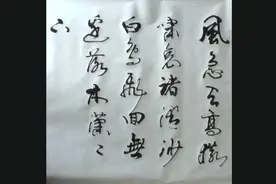 風急天高猿
嘯哀渚清沙
白鳥飛回無
邊落木蕭〻
下